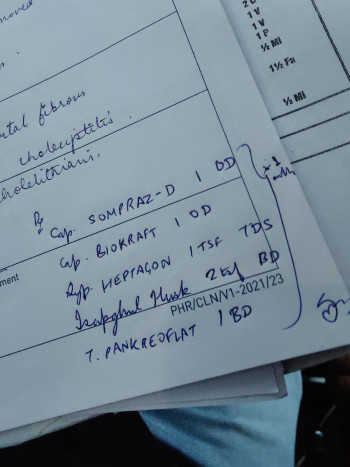 moved
2 C
1 V
1 V
1 P
½ Ml
1½ Fu
½ Ml
ntal fibrous
cholecystitis.
holelithiasis.
Rx
Cap. SOMPRAZ-D 1 OD
Cap. BIOKRAFT 1 OD
ment
Syp. HEPTAGON 1 TSF TDS
Isapghul Husk 2 tsf BD
PHR/CLN/V1-2021/23
T. PANKREOFLAT 1 BD